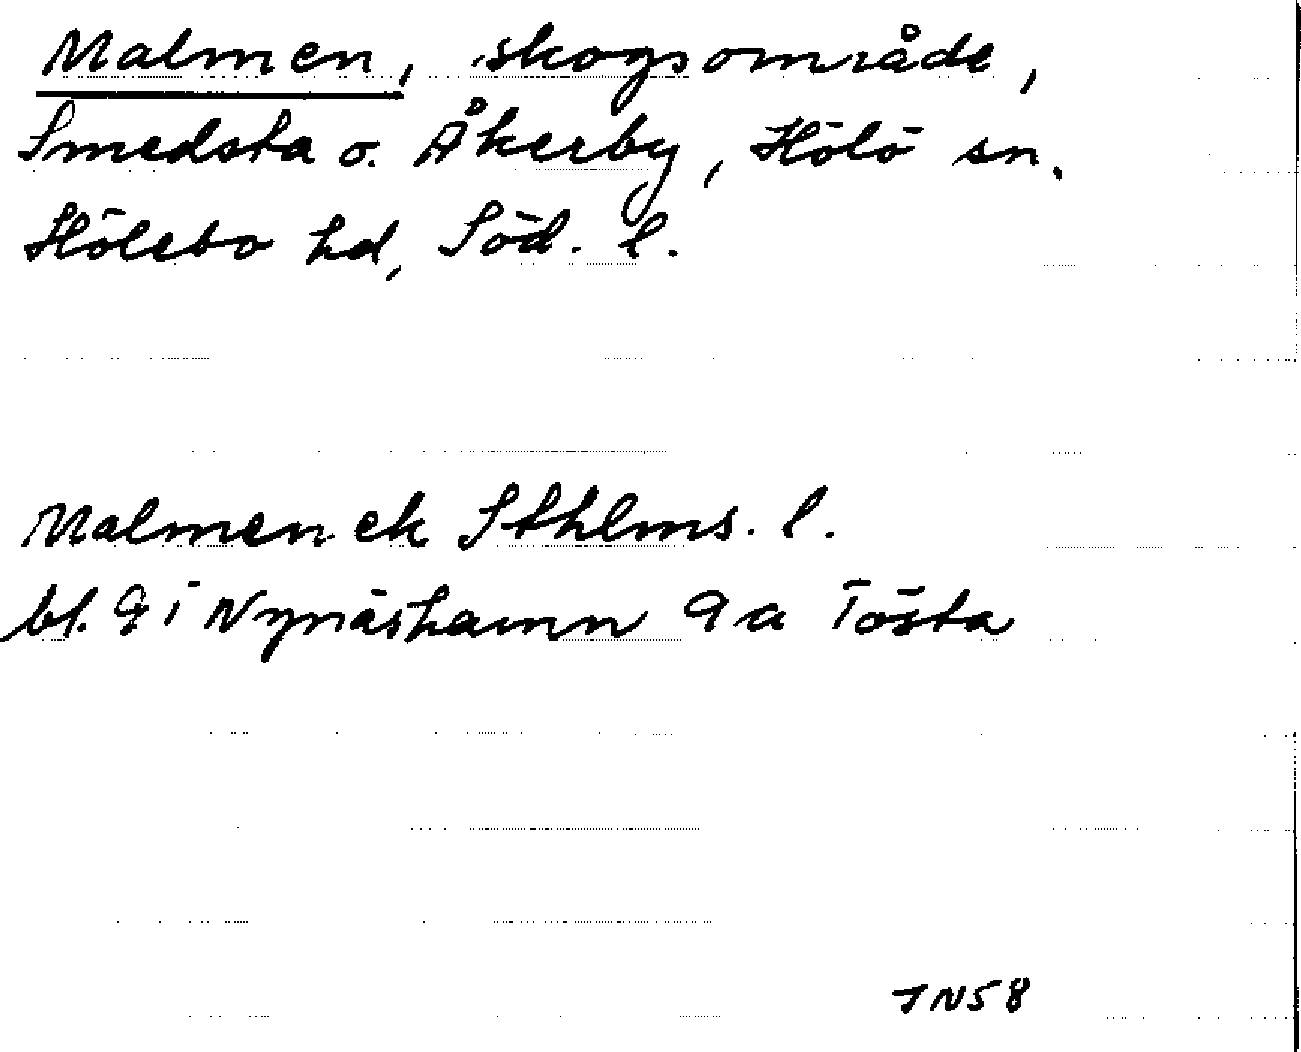 Malmen, skogsområde,
Smedsta o. Åkerby, Hölö sn.
Hölebo hd, Söd. l.
Malmen ek Sthlms. l.
bl. 9 i Nynäshamn 9a Tösta
JN58